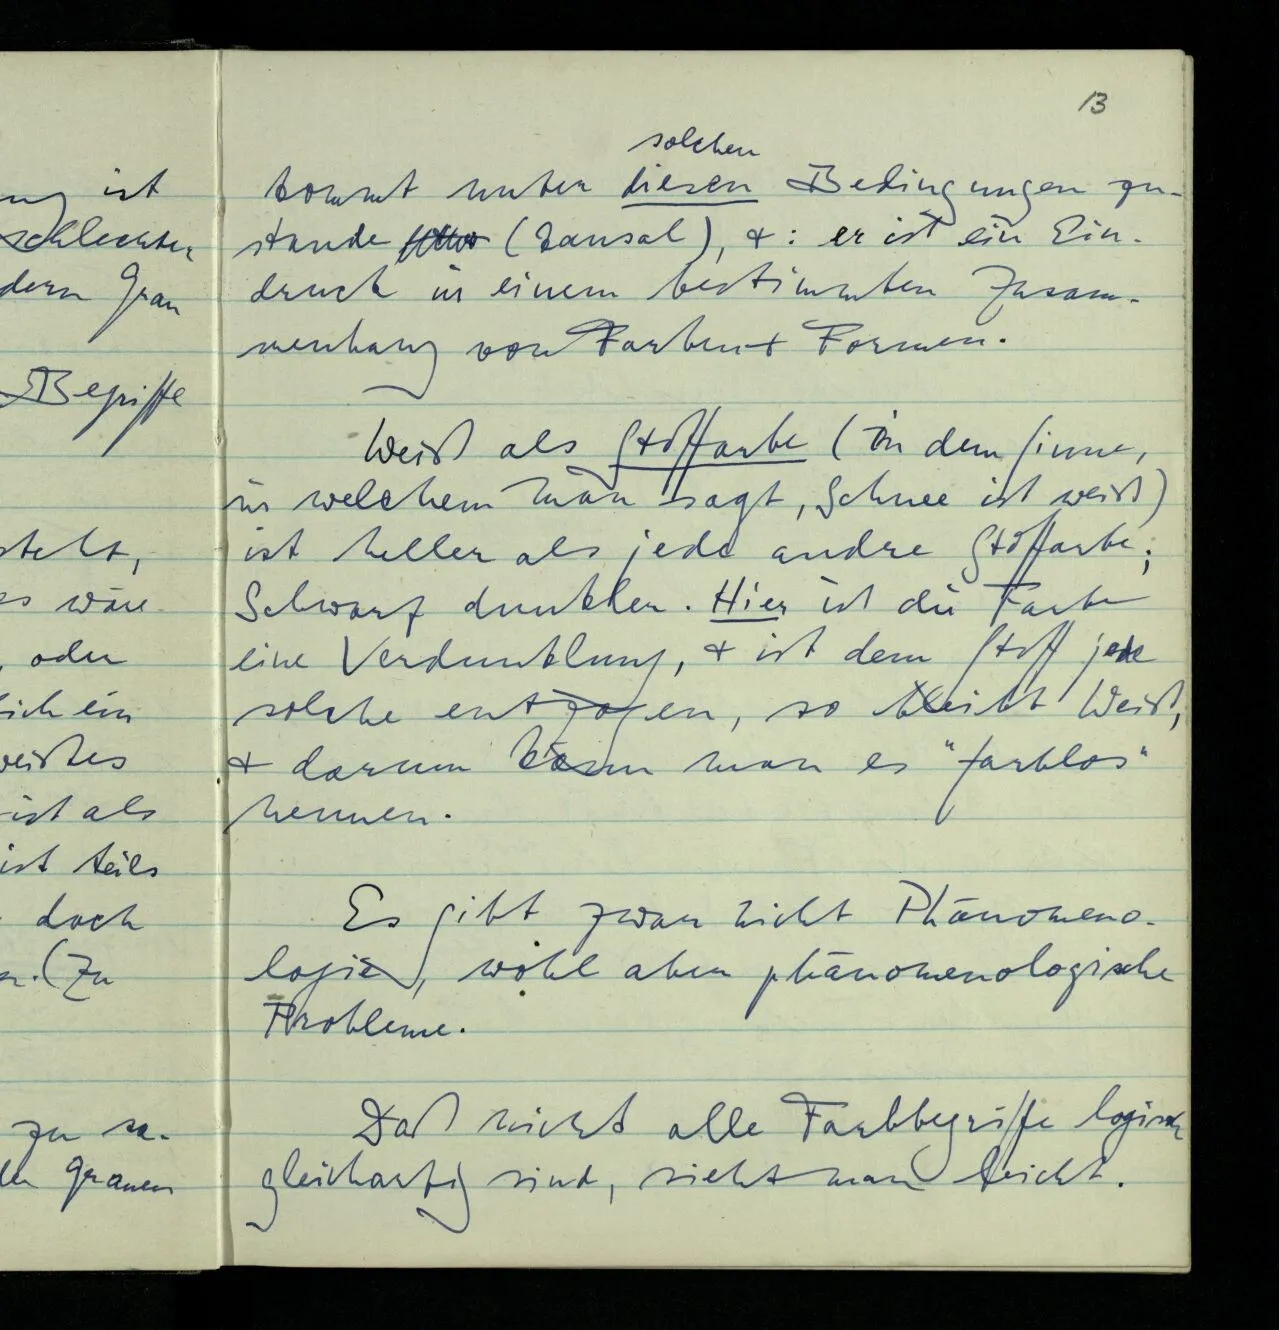 ist
schlechter
dern Grau
Begriffe
steht,
es wäre
, oder
lich ein
weißes
ist als
ist teils
doch
(Zu
zu sa-
Grauen
13
solchen
kommt unter diesen Bedingungen zu-
stande (kausal), & : er ist ein Ein-
druck in einem bestimmten Zusam-
menhang von Farben & Formen.
Weiß als Stoffarbe (in dem Sinne,
in welchem man sagt, Schnee ist weiß)
ist heller als jede andre Stoffarbe;
Schwarz dunkler. Hier ist die Farbe
eine Verdunklung, & ist dem Stoff jede
solche entzogen, so bleibt Weiß,
& darum kann man es "farblos"
nennen.
Es gibt zwar nicht Phänomeno-
logie, wohl aber phänomenologische
Probleme.
Daß nicht alle Farbbegriffe logisch
gleichartig sind, sieht man leicht.